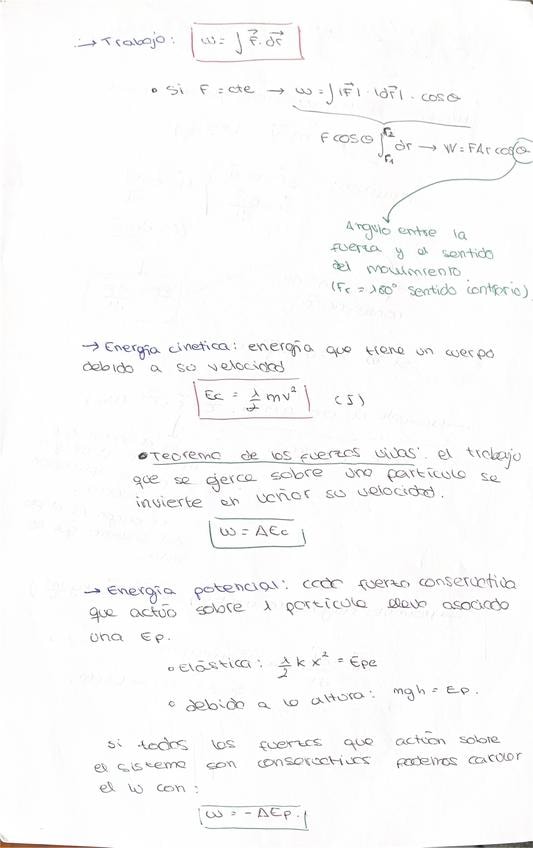 → Trabajo: W = ∫ F⃗ · dr⃗
• Si F = cte → W = ∫ |F⃗| · |dr⃗| · cosθ
F cosθ ∫r₁^r₂ dr → W = FΔr cosθ
Angulo entre la
fuerza y el sentido
del movimiento
(Fr = 180° sentido contrario)
→ Energía cinetica: energía que tiene un cuerpo
debido a su velocidad
Ec = 1/2 mv² (J)
• Teorema de las fuerzas vivas: el trabajo
que se ejerce sobre una partícula se
invierte en variar su velocidad.
W = ΔEc
→ Energía potencial: cada fuerza conservativa
que actúa sobre 1 partícula lleva asociado
una Ep.
• elástica: 1/2 k x² = Epe
• debido a la altura: mgh = Ep.
si todas las fuerzas que actúan sobre
el sistema son conservativas podemos calcular
el W con:
W = - ΔEp.